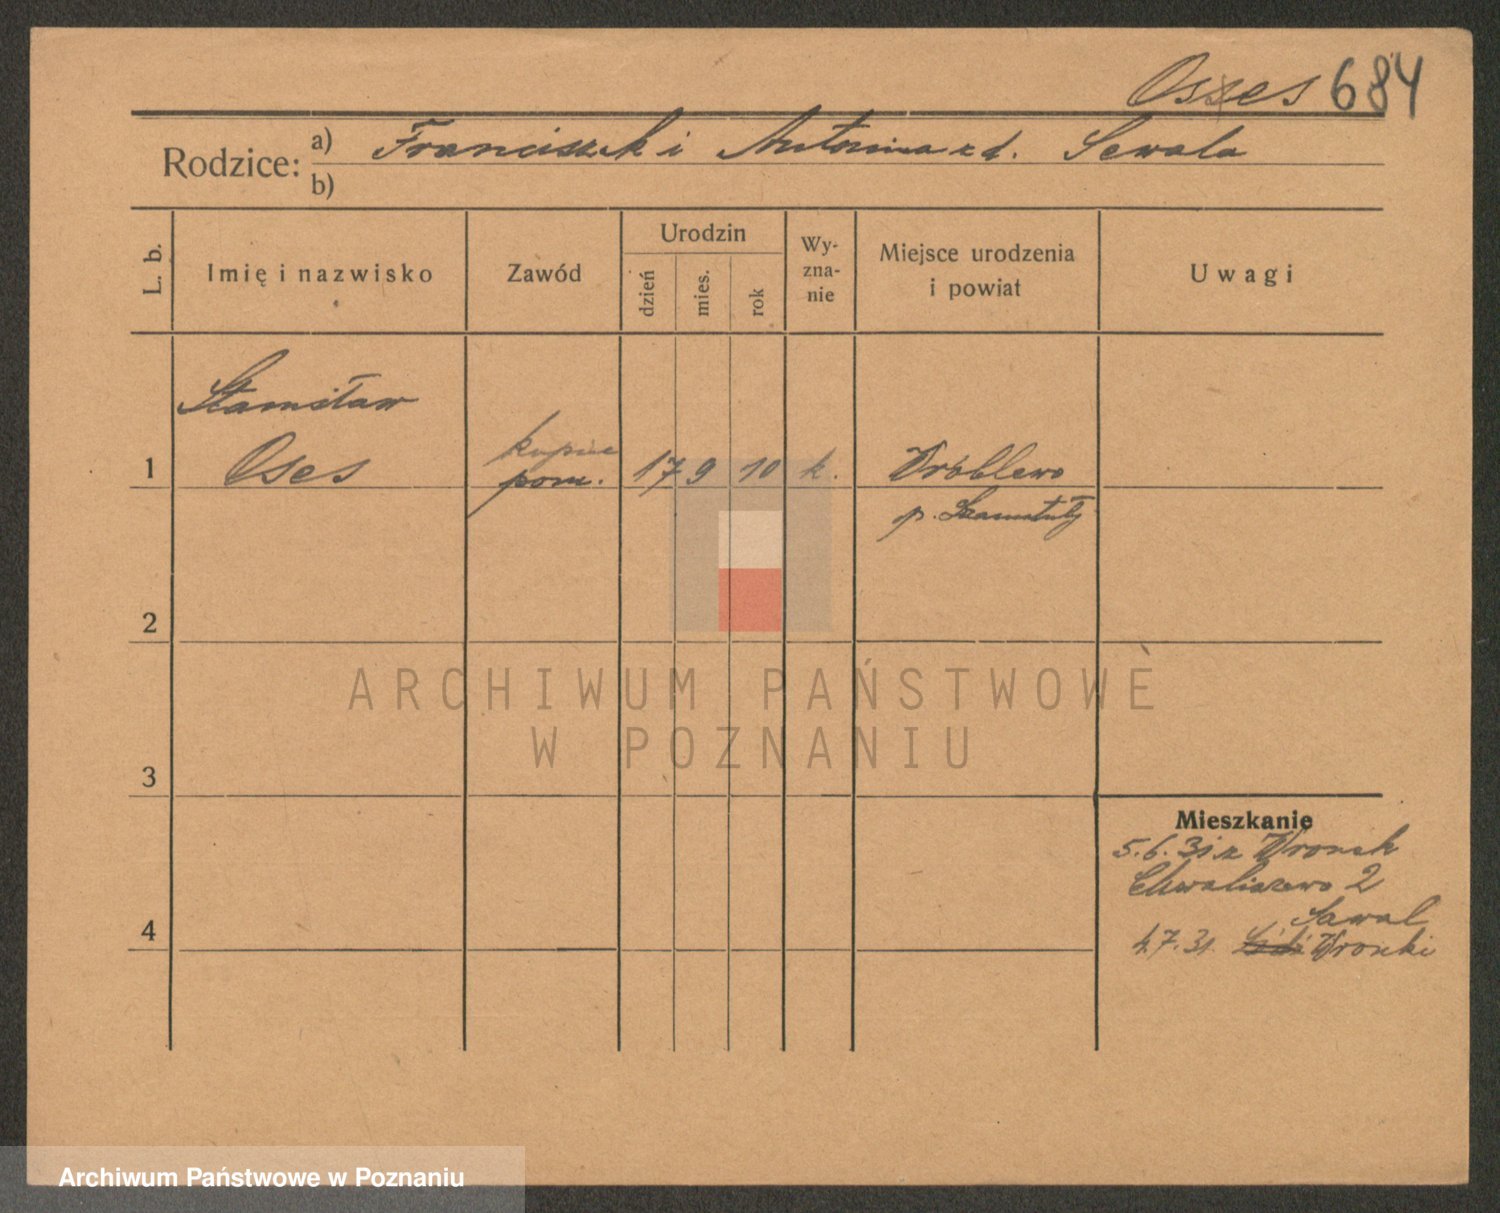 Oszes 684
Rodzice: a) Franciszek i Antonina z d. Sewala
b)
L. b.
Imię i nazwisko
Zawód
Urodzin
dzień
mies.
rok
Wy-
zna-
nie
Miejsce urodzenia
i powiat
Uwagi
Stanisław
1 Oses
kupiec
pom.
17 9 10 k.
Wróblewo
p. Szamotuły
2
3
4
Mieszkanie
5.6.31 z Wronek
Chwaliszewo 2
4.7.31. Wronki
ARCHIWUM PAŃSTWOWE
W POZNANIU
Archiwum Państwowe w Poznaniu